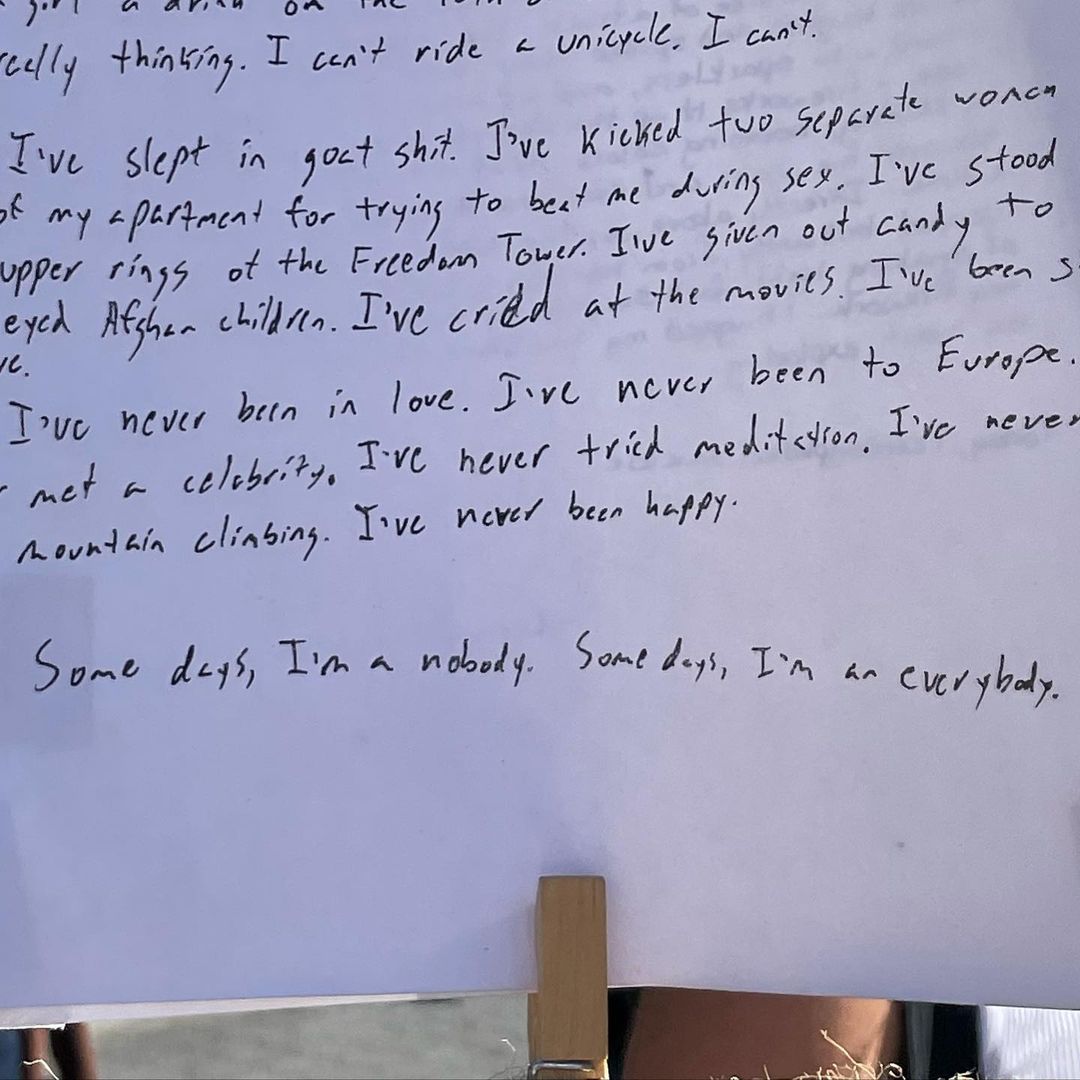 girl a drink on the
really thinking. I can't ride a unicycle. I can't.
I've slept in goat shit. I've kicked two separate women
of my apartment for trying to beat me during sex. I've stood
upper rings of the Freedom Tower. I've given out candy to
eyed Afghan children. I've cried at the movies. I've been s
ve.
I've never been in love. I've never been to Europe.
met a celebrity. I've never tried meditation. I've never
mountain climbing. I've never been happy.
Some days, I'm a nobody. Some days, I'm an everybody.